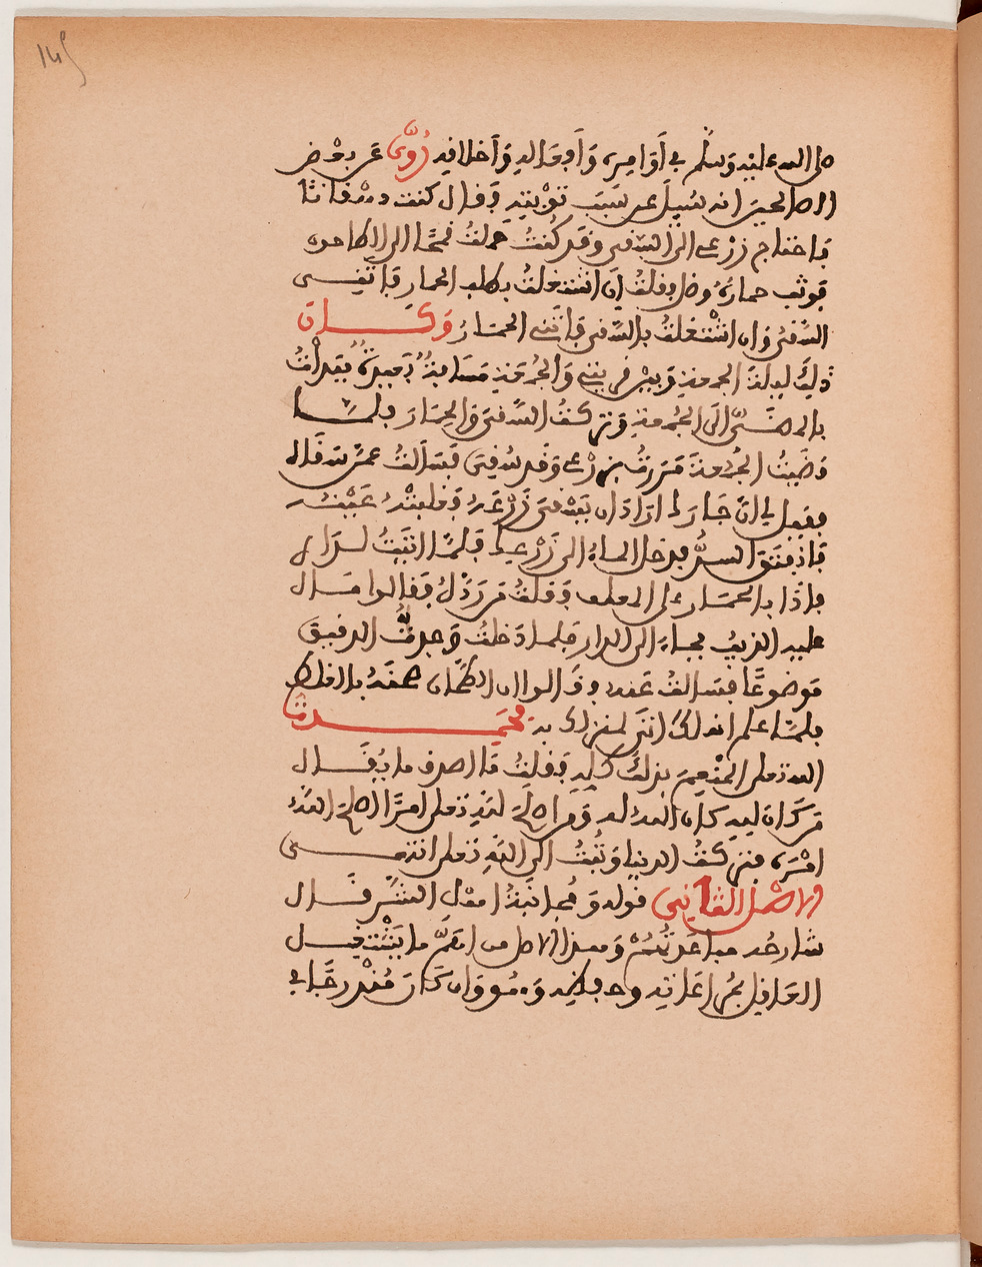 145
صلى الله عليه وسلم في أوامره وأفعاله وأخلاقه رُوِيَ عن بعض
الصالحين انه سُيِلَ عن سَبَبِ توْبَتِهِ فقال كنت دهْقانًا
فاحتاج زرْعي الى السَّقي وقد كُنتُ حملتُ قمحًا الى الطاحونه
فوثب حمارٌ وضل فقلتُ إن اشتغلتُ بطلب الحمار فاتَنِي
السَّقيُ وان اشتغلتُ بالسَّقي فاتني الحمَارُ وَكَانَ
ذلك ليلة الجمعة وبين قريتي والجُمعة مسَافةٌ بَعيدةٌ فبَدأتُ
بالمضيِّ الى الجُمعة وتركتُ السَّقيَ والحِمَارَ فلمَّا
قضيتُ الجُمُعةَ مَرَرتُ بزرْعي وقد سُقِيَ فسَألتُ عمَّن سقاه
فقيل لي انّ جارك ارادَ ان يَسْقي زَرْعَهُ فغلبتْهُ عَيْنُهُ
فانفتق السدُّ فدخل الماءُ الى زَرْعِك فلمَّا اتيتُ لدَاري
فاذا بالحمَار على المعلف فقلتُ من رَدَّهُ فقالوا صَال
عليه الذيبُ فجاء الى الدار فلما دخلتُ وجدتُ به الدقيقَ
مَوضوعًا فسَالتُ عنه وقالوا ان الطحَّان طحنَهُ بالغلط
فلمَّا علم انه لك اتى لمنزلك به فَحَمِدتُ
الله تعلى المنْعِمَ بذلكَ كله فقلتُ ما اصدق ما يُقَال
من كَانَ لله كان اللهُ له ومن اصلح لله تعلى امرًا اصلح اللهُ
امْرَه فتركتُ الدنيا وتُبْتُ الى الله تعلى انتهى
والاصْل الثاني قوله وَمُجَانَبَةُ اهل الشَّرِّ قال
شارحُه مباعدتُهُمْ وهذا الاصل من اهَمِّ ما يَشْتغِل
العَاقِل بمُراعَاته وحفظه وَهُو وَان كَان مُنْدرجًا في